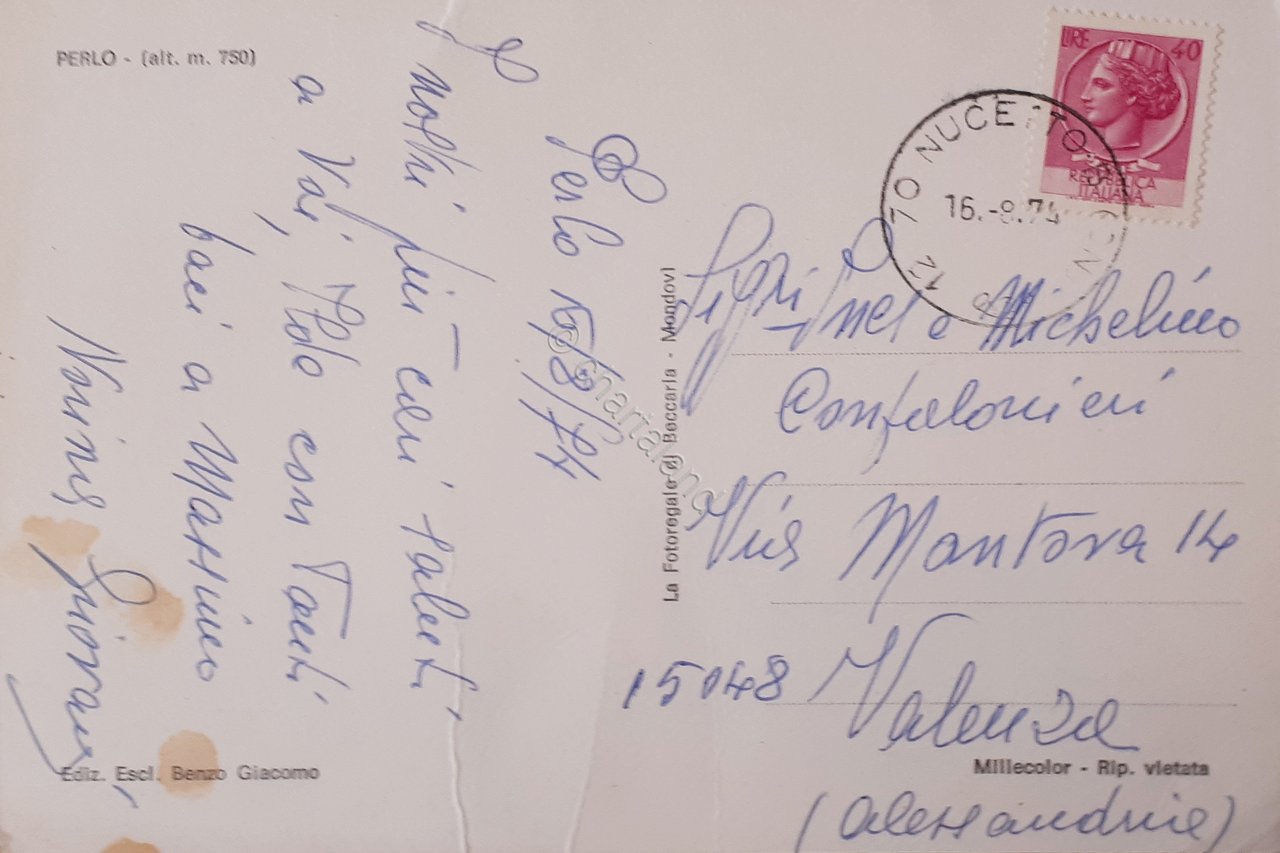 PERLO - (alt. m. 750)
Perlo 15/8/74
I nostri più cari saluti
a Voi, Aldo con Tanti
baci a Massimo
Giovanni
Ediz. Escl. Benzo Giacomo
La Fotoregale di Beccaria - Mondovì
LIRE 40
REPUBBLICA
ITALIANA
NUCETTO
16.-8.74
e Michelino
Confalonieri
Via Mantova 14
15048 Valenza
(Alessandria)
Millecolor - Rip. vietata
© chartaland